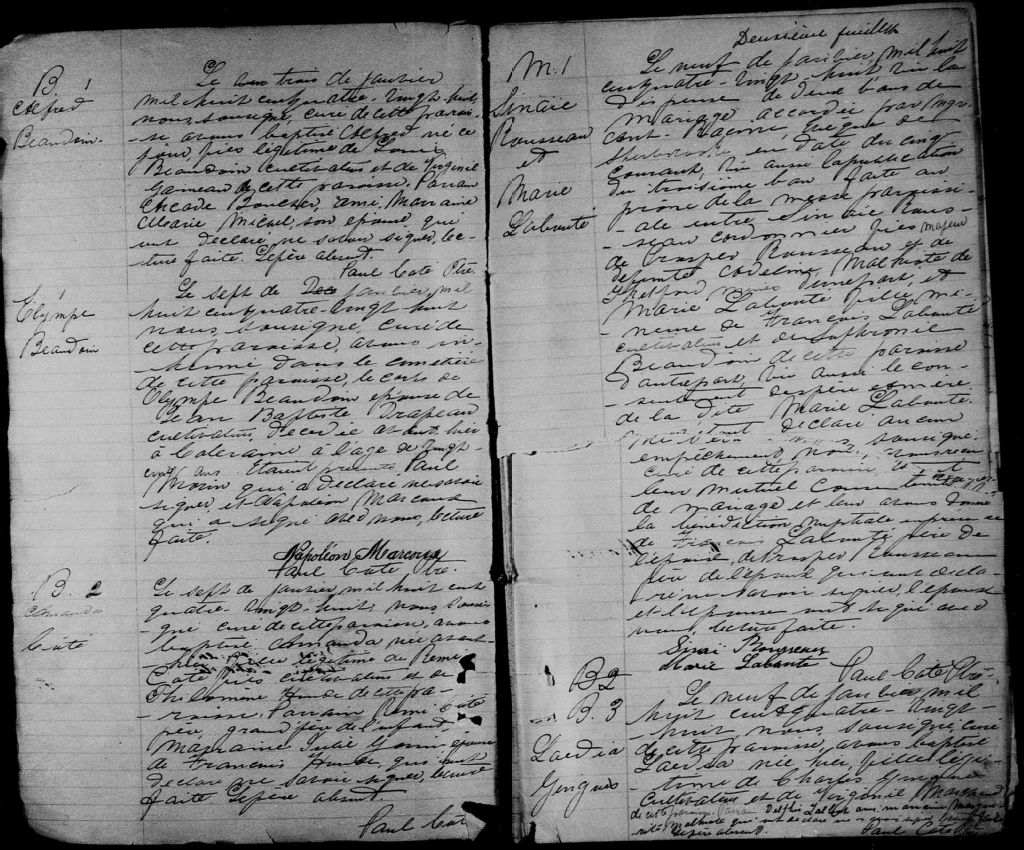 B. 1
Alfred
Beaudoin.
Le trois de janvier
mil huit cent quatre-vingt-huit,
nous, soussigné, curé de cette parois-
se avons baptisé Alfred né ce
jour, fils légitime de Louis
Beaudoin cultivateur et de Virginie
Garneau de cette paroisse. Parrain
Arcade Boucher, ami, Marraine
Marie Michel, son épouse qui
ont déclaré ne savoir signer, lec-
ture faite. Le père absent.
Paul Coté Ptre.
Olympe
Beaudoin
Le sept de janvier, mil
huit cent quatre-vingt huit
nous, soussigné, curé de
cette paroisse, avons in-
humé dans le cimetière
de cette paroisse, le corps de
Olympe Beaudoin épouse de
Jean Baptiste Drapeau
cultivateur, décédée avant hier
à l'âge de vingt
ans. Etaient présents Paul
Morin qui a déclaré ne savoir
signer, et Napoléon Marcoux
qui a signé avec nous, lecture
faite.
Napoléon Marcoux
Paul Coté Ptre.
B. 2
Amanda
Coté
Le sept de janvier, mil huit cent
quatre-vingt-huit, nous soussi-
gné curé de cette paroisse, avons
baptisé Amanda née avant-
hier fille légitime de Rémi
Coté cultivateur et de
Philomène de cette pa-
roisse. Parrain Rémi Coté
père, grand père de l'enfant,
Marraine Julie épouse
de François qui ont
déclaré ne savoir signer, lecture
faite. Le père absent.
Paul Coté
Deuxième feuillet
M. 1
Sinaie
Rousseau
et
Marie
Labonté
Le neuf de janvier, mil huit
cent quatre-vingt-huit, vu la
dispense de deux bans de
mariage accordée par Mgr
Racine, évêque de
Sherbrooke en date du cinq
courant, vu aussi la publication
du troisième ban faite au
prône de la messe paroissi-
ale entre Sinaie Rous-
seau cordonnier fils majeur
de Prosper Rousseau et de
défunte Adeline Malhiote de
Thetford Mines d'une part, et
Marie Labonté fille mi-
neure de François Labonté
cultivateur et de Sophronie
Beaudoin de cette paroisse
d'autre part, vu aussi le con-
sentement des père et mère
de la dite Marie Labonté.
aucun
empêchement, nous, soussigné
curé de cette paroisse,
leur mutuel consentement
de mariage et leur avons donné
la bénédiction nuptiale en présence
de François Labonté père de
l'épouse, de Prosper Rousseau
père de l'époux qui ont décla-
ré ne savoir signer, l'époux
et l'épouse ont signé avec
nous, lecture faite.
Sinai Rousseau
Marie Labonté
Paul Coté Ptre.
B 2
B. 3
Laedia
Gengues
Le neuf de janvier mil
huit cent quatre-vingt-
huit, nous, soussigné, curé
de cette paroisse, avons baptisé
Laedia née hier, fille légi-
time de Charles
cultivateur et de Virginie Marcoux
de cette paroisse. Parrain Delphis ami, marraine
Malhiote qui ont déclaré ne savoir signer,
Le père absent.
Paul Coté Ptre